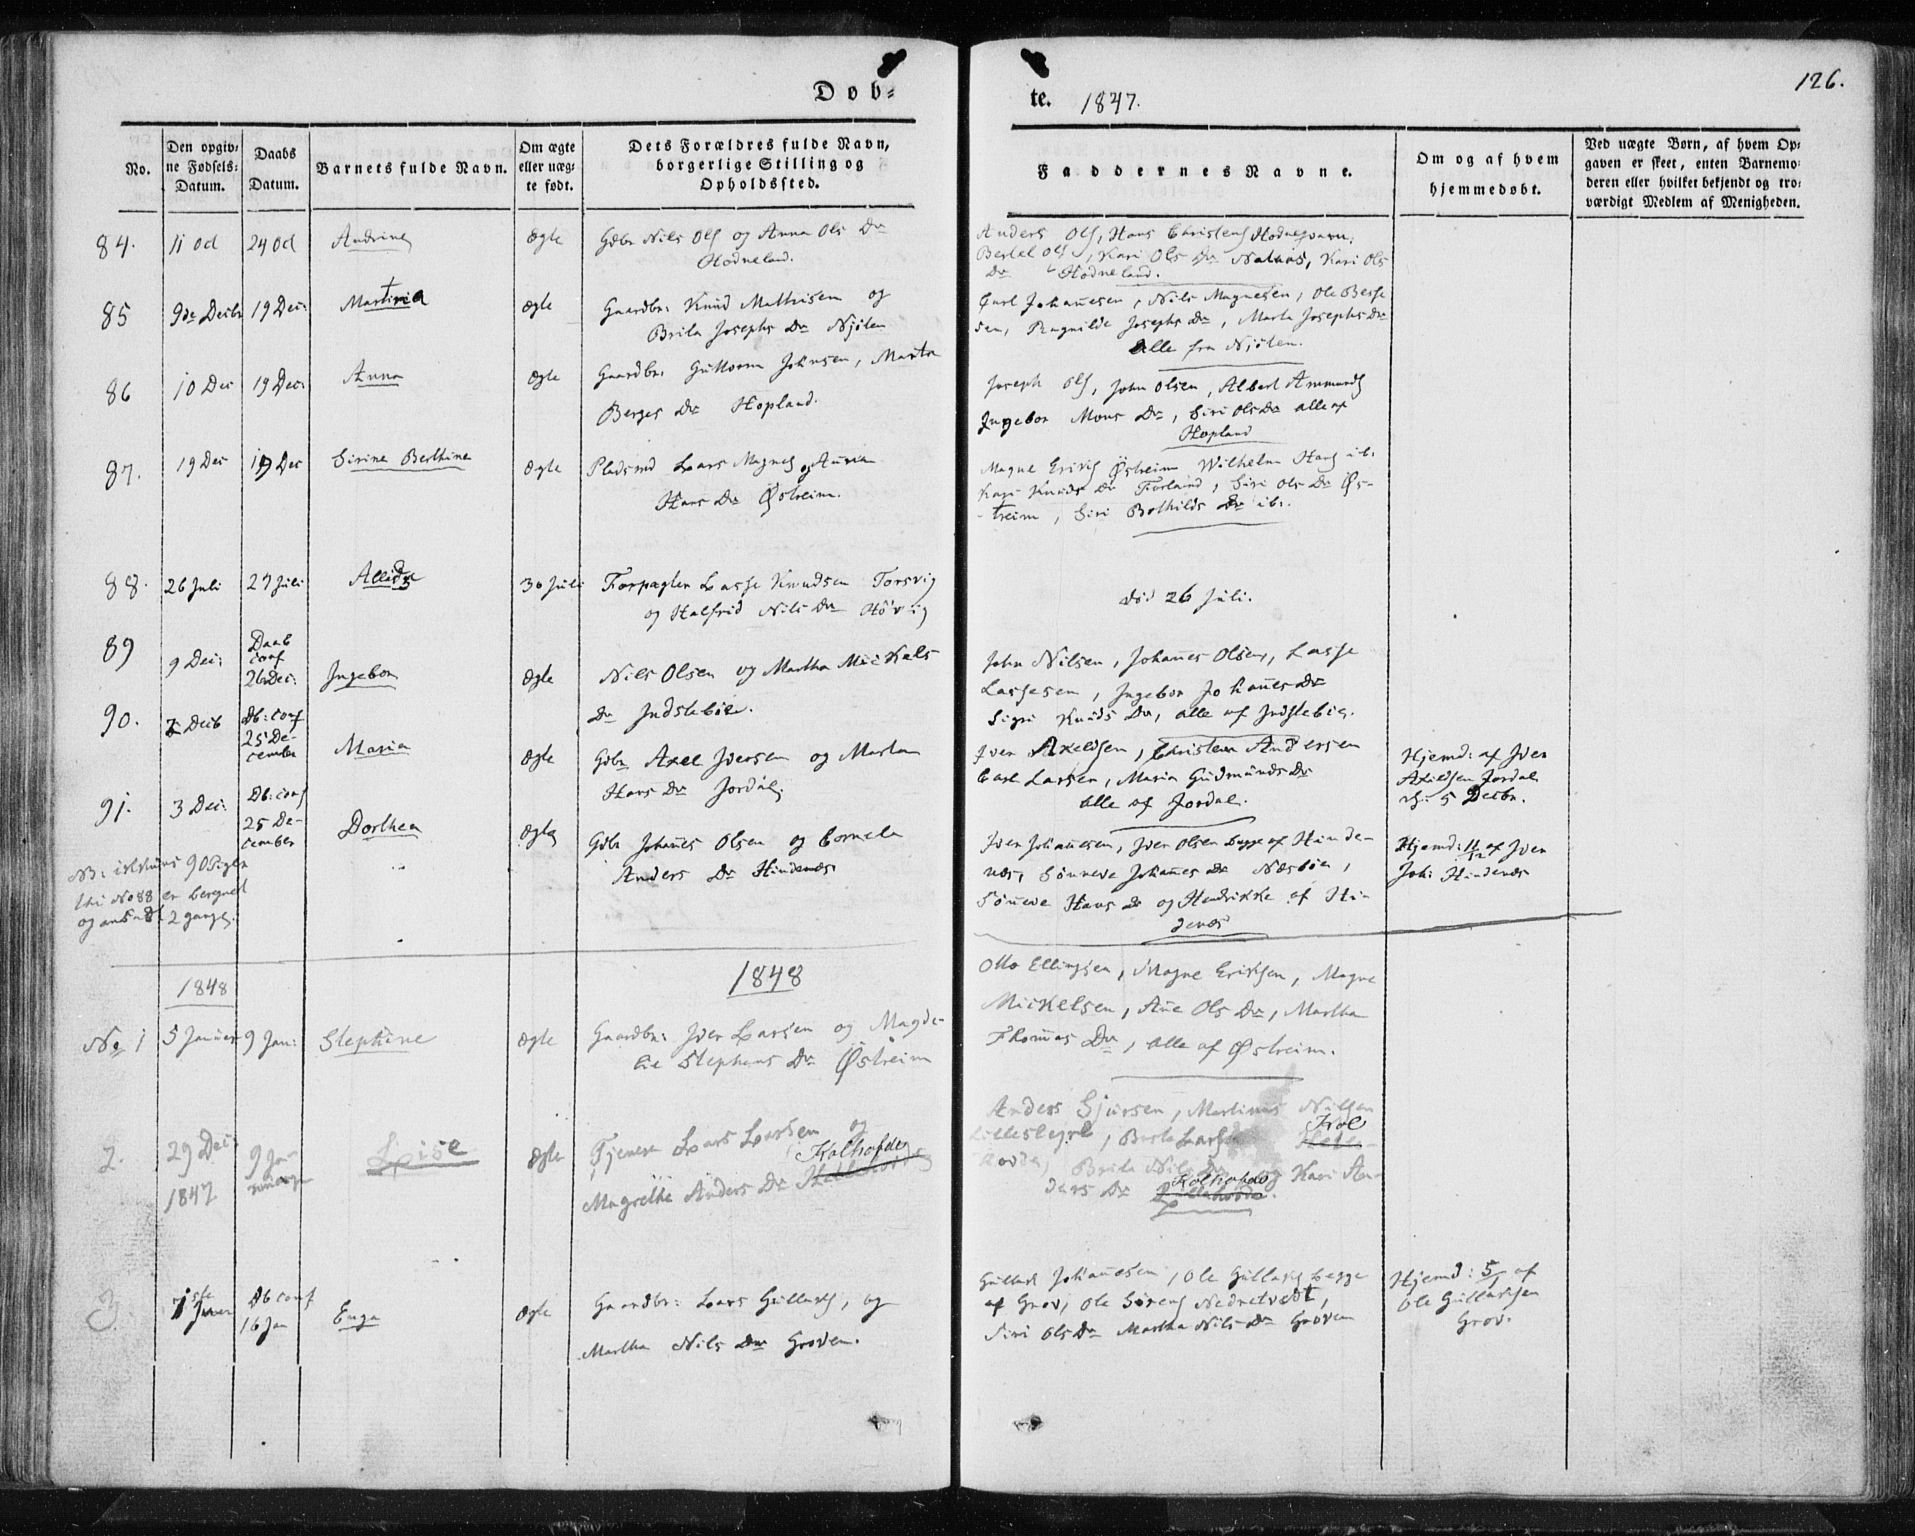 Døb-
te. 1847.
126.
No.
Den opgiv-
ne Fødsels-
Datum.
Daabs
Datum.
Barnets fulde Navn.
Om ægte
eller uæg-
te født.
Dets Forældres fulde Navn,
borgerlige Stilling og
Opholdssted.
Faddernes Navne.
Om og af hvem
hjemmedøbt.
Ved uægte Børn, af hvem Op-
gaven er skeet, enten Barnemo-
deren eller hvilket bekjendt og tro-
værdigt Medlem af Menigheden.
84. 11 Oct 24 Oct Andrine Ægte Gdbr Nils Ols og Anna Ols Dr
Hodneland.
Anders Ols, Hans Christens
Bertel Ols, Kari Ols Dr Nataas, Kari Ols
Dr Hodneland.
85 9de Decbr 19 Dec: Ægte Gaardbr: Knud Mathisen og
Brita Josephs Dr Njøten
Carl Johannesen, Nils Magnesen, Ole Besse
sen, Ragnilde Josephs Dr, Marta Josephs Dr
alle fra Njøten.
86 10 Dec 19 Dec: Anna Ægte Gaardbr: Guttorm Johnsen, Marta
Berges Dr Hopland.
Joseph Ols, John Olsen, Albert Ammunds
Ingebor Mons Dr, Siri Ols Dr alle af
Hopland
87. 19 Dec 19 Dec Sirine Berthine Ægte Pladsmd Lars Magnes og Anna
Hans Dr Østreim.
Magne Erichs Østreim Wilhelm Hans ib:
Kari Knuds Dr Fjorland, Siri Ols Dr Øs-
treim, Siri Bothilds Dr ib:.
88. 26 Juli 27 Juli 30 Juli Forpagter Lasse Knudsen Torsvig
og Halfrid Nils Dr Høvig
død 26 Juli.
89 9 Dec: Daab
conf
26 Dec: Ingebor Ægte Nils Olsen og Martha Mickels
Dr Indstebøe.
John Nilsen, Johannes Olsen, Lasse
Lassesen, Ingebor Johannes Dr
Sigri Knuds Dr, alle af Indstebøe.
90. 2 Decb Db: conf
25 De-
cember Maria Ægte Gdbr Axel Iversen og Martha
Hans Dr Jordal.
Iver Axeldsen, Christen Andersen
Carl Larsen, Maria Gudmunds Dr
alle af Jordal.
Hjemd: af Iver
Axeldsen Jordal
5 Decbr.
91. 3 Dec: Db: conf
25 De-
cember Dorthea Ægte Gdbr Johanes Olsen og Cornela
Anders Dr Hindenæs
Iver Johannesen, Iver Olsen begge af Hinde-
næs, Sønneve Johannes Dr Næsbøen,
Sønneve Hans Dr og Hendrikke af Hi-
denæs
Hjemd: 11/12 af Iver
Joh: Hindenæs
NB: 90
thi No 88 er beregnet
2 gange.
1848
1848
No 1 5 Januar 9 Jan: Stephine Ægte Gaardbr: Iver Larsen og Magde-
lie Stephens Dr Østreim
Otto Ellingsen, Magne Eriksen, Magne
Mickelsen, Ane Ols Dr, Martha
Thomas Dr, alle af Østreim.
2. 29 Dec:
1847 9 Ja-
nuar Lise Ægte Tjener Lars Larsen og
Magrethe Anders Dr Kolhofde
Anders Sjursen, Martinus Nilsen
Brita Nils Dr og Kari An-
ders Dr Kolhofde
3. 1ste Januar Db conf
16 Jan Enga Ægte Gaardbr: Lars Gullachs, og
Martha Nils Dr Groven.
Gullack Johannesen, Ole Gullachs begge
af Grov, Ole Sørens Nedretvedt,
Siri Ols Dr Martha Nils Dr Groven
Hjemd: 5/1 af
Ole Gullachsen
Grov.